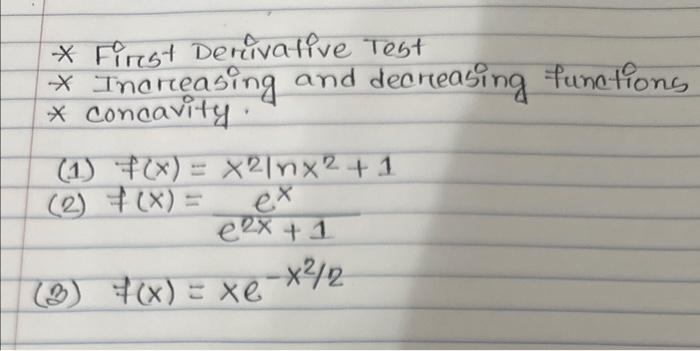 * First Derivative Test
* Increasing and decreasing functions
* concavity.
(1) f(x) = x²lnx² + 1
(2) f(x) = e^x / (e^2x + 1)
(3) f(x) = xe^-x²/2